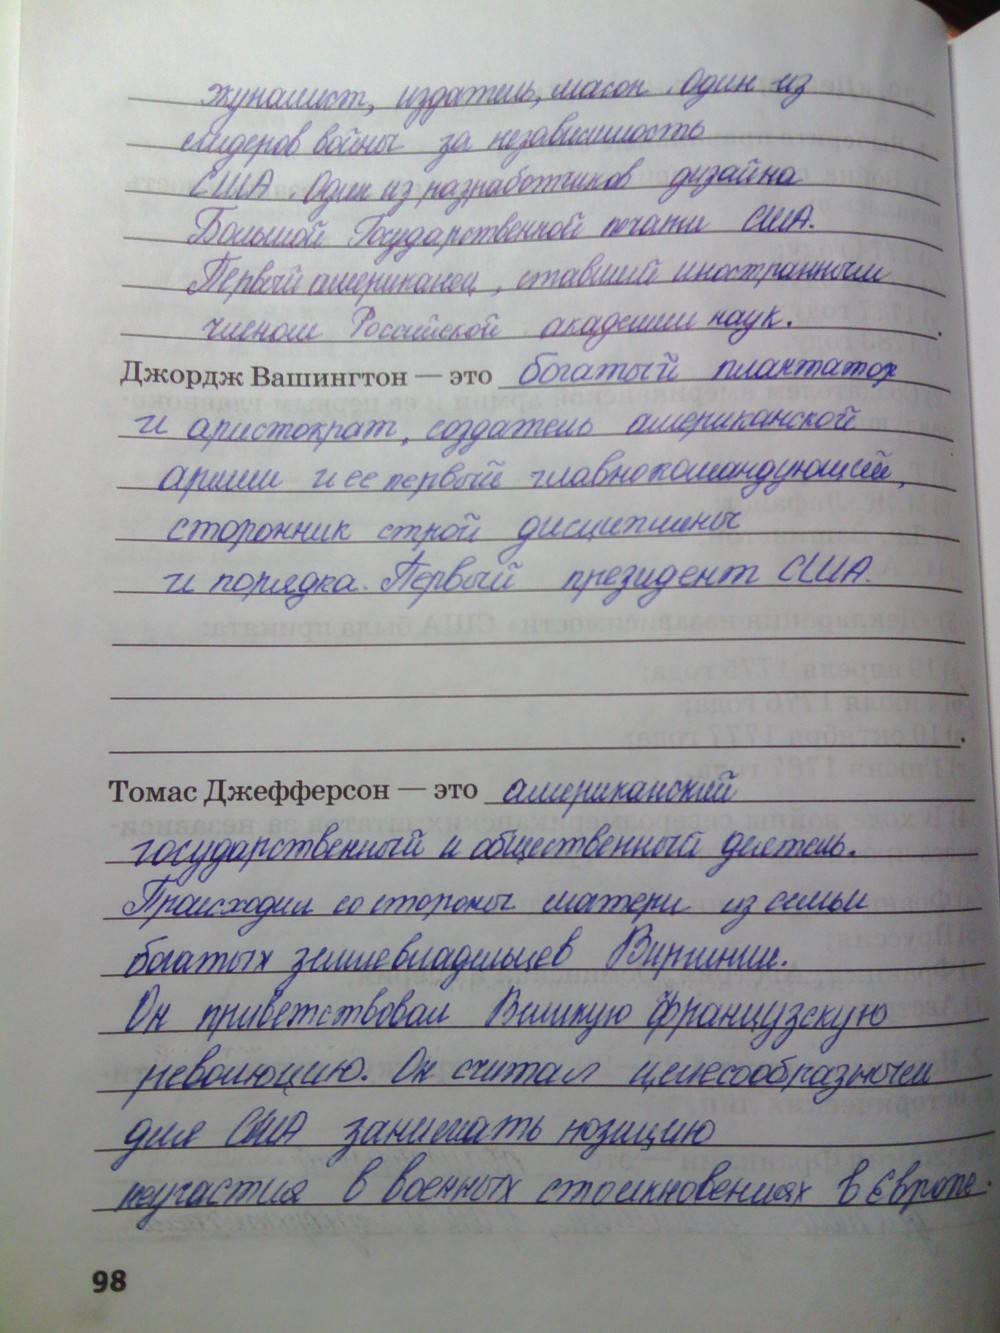 журналист, издатель, масон один из
лидеров войны за независимость
США. Один из разработчиков дизайна
Большой Государственной печати США.
Первый американец, ставший иностранным
членом Российской академии наук.
Джордж Вашингтон — это богатый плантатор
и аристократ, создатель американской
армии и ее первый главнокомандующий,
сторонник строй дисциплины
и порядка. Первый президент США.
Томас Джефферсон — это американский
государственный и общественный деятель.
Происходил со стороны матери из семьи
богатых землевладельцев Виргинии.
Он приветствовал Великую французскую
революцию. Он считал целесообразным
для США занимать позицию
неучастия в военных столкновениях в Европе.
98